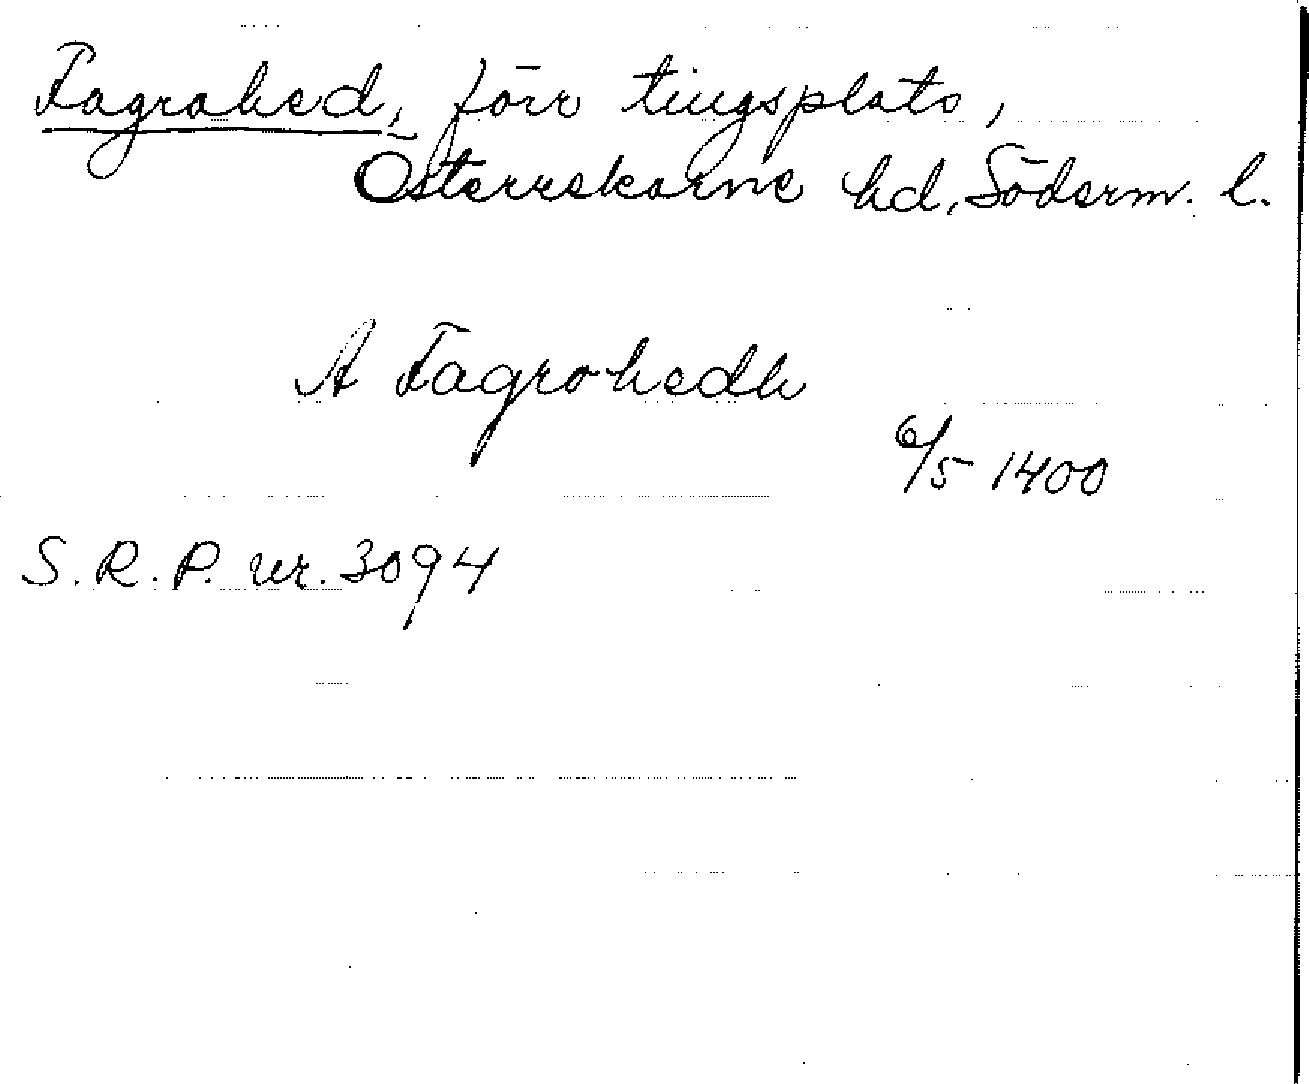 Fagrahed, förr tingsplats,
Österrekarne hd, Söderm. l.
A Fagrohedh
6/5 1400
S. R. P. nr. 3094